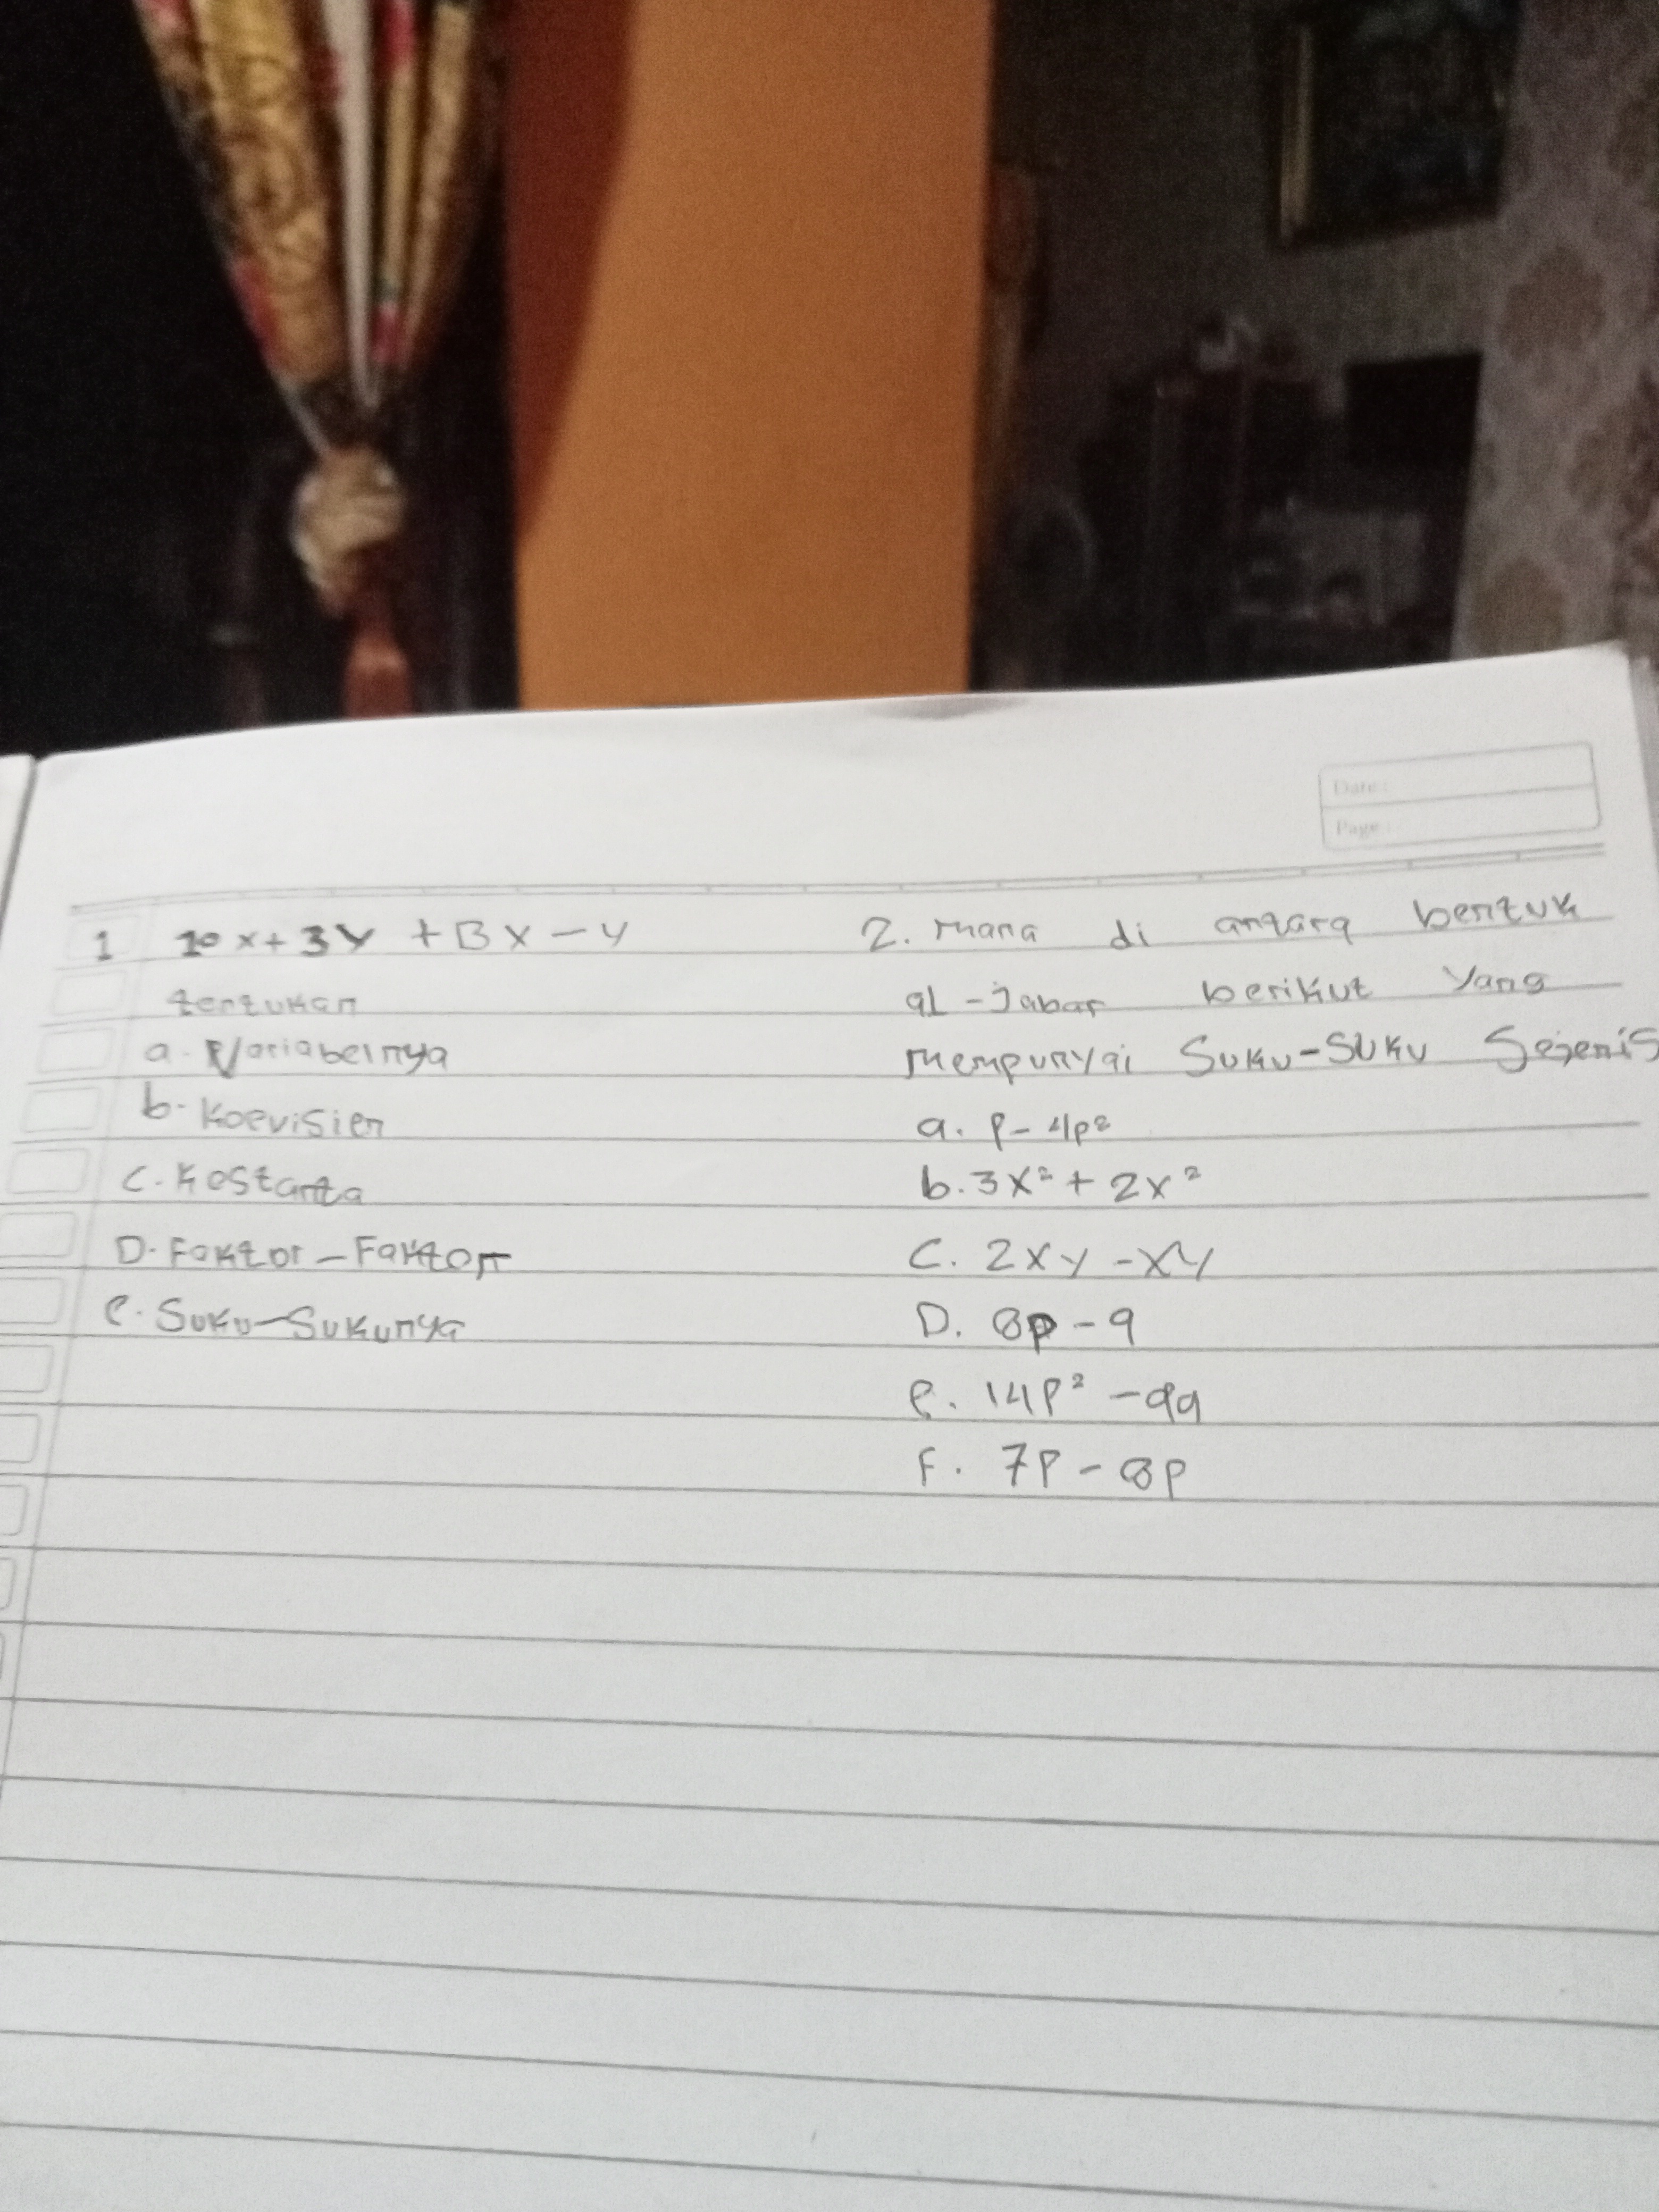 Date:
Page:
1 10x + 3y + Bx - y
tentukan
a. Variabelnya
b. Koevisien
C. Kostanta
D. Faktor - Faktor
e. Suku-Sukunya
2. Mana di antara bentuk
al-Jabar berikut yang
mempunyai Suku-Suku Sejenis
a. p - 4p²
b. 3x² + 2x²
C. 2xy - xy
D. 8p - 9
e. 14p² - 9q
F. 7p - 8p